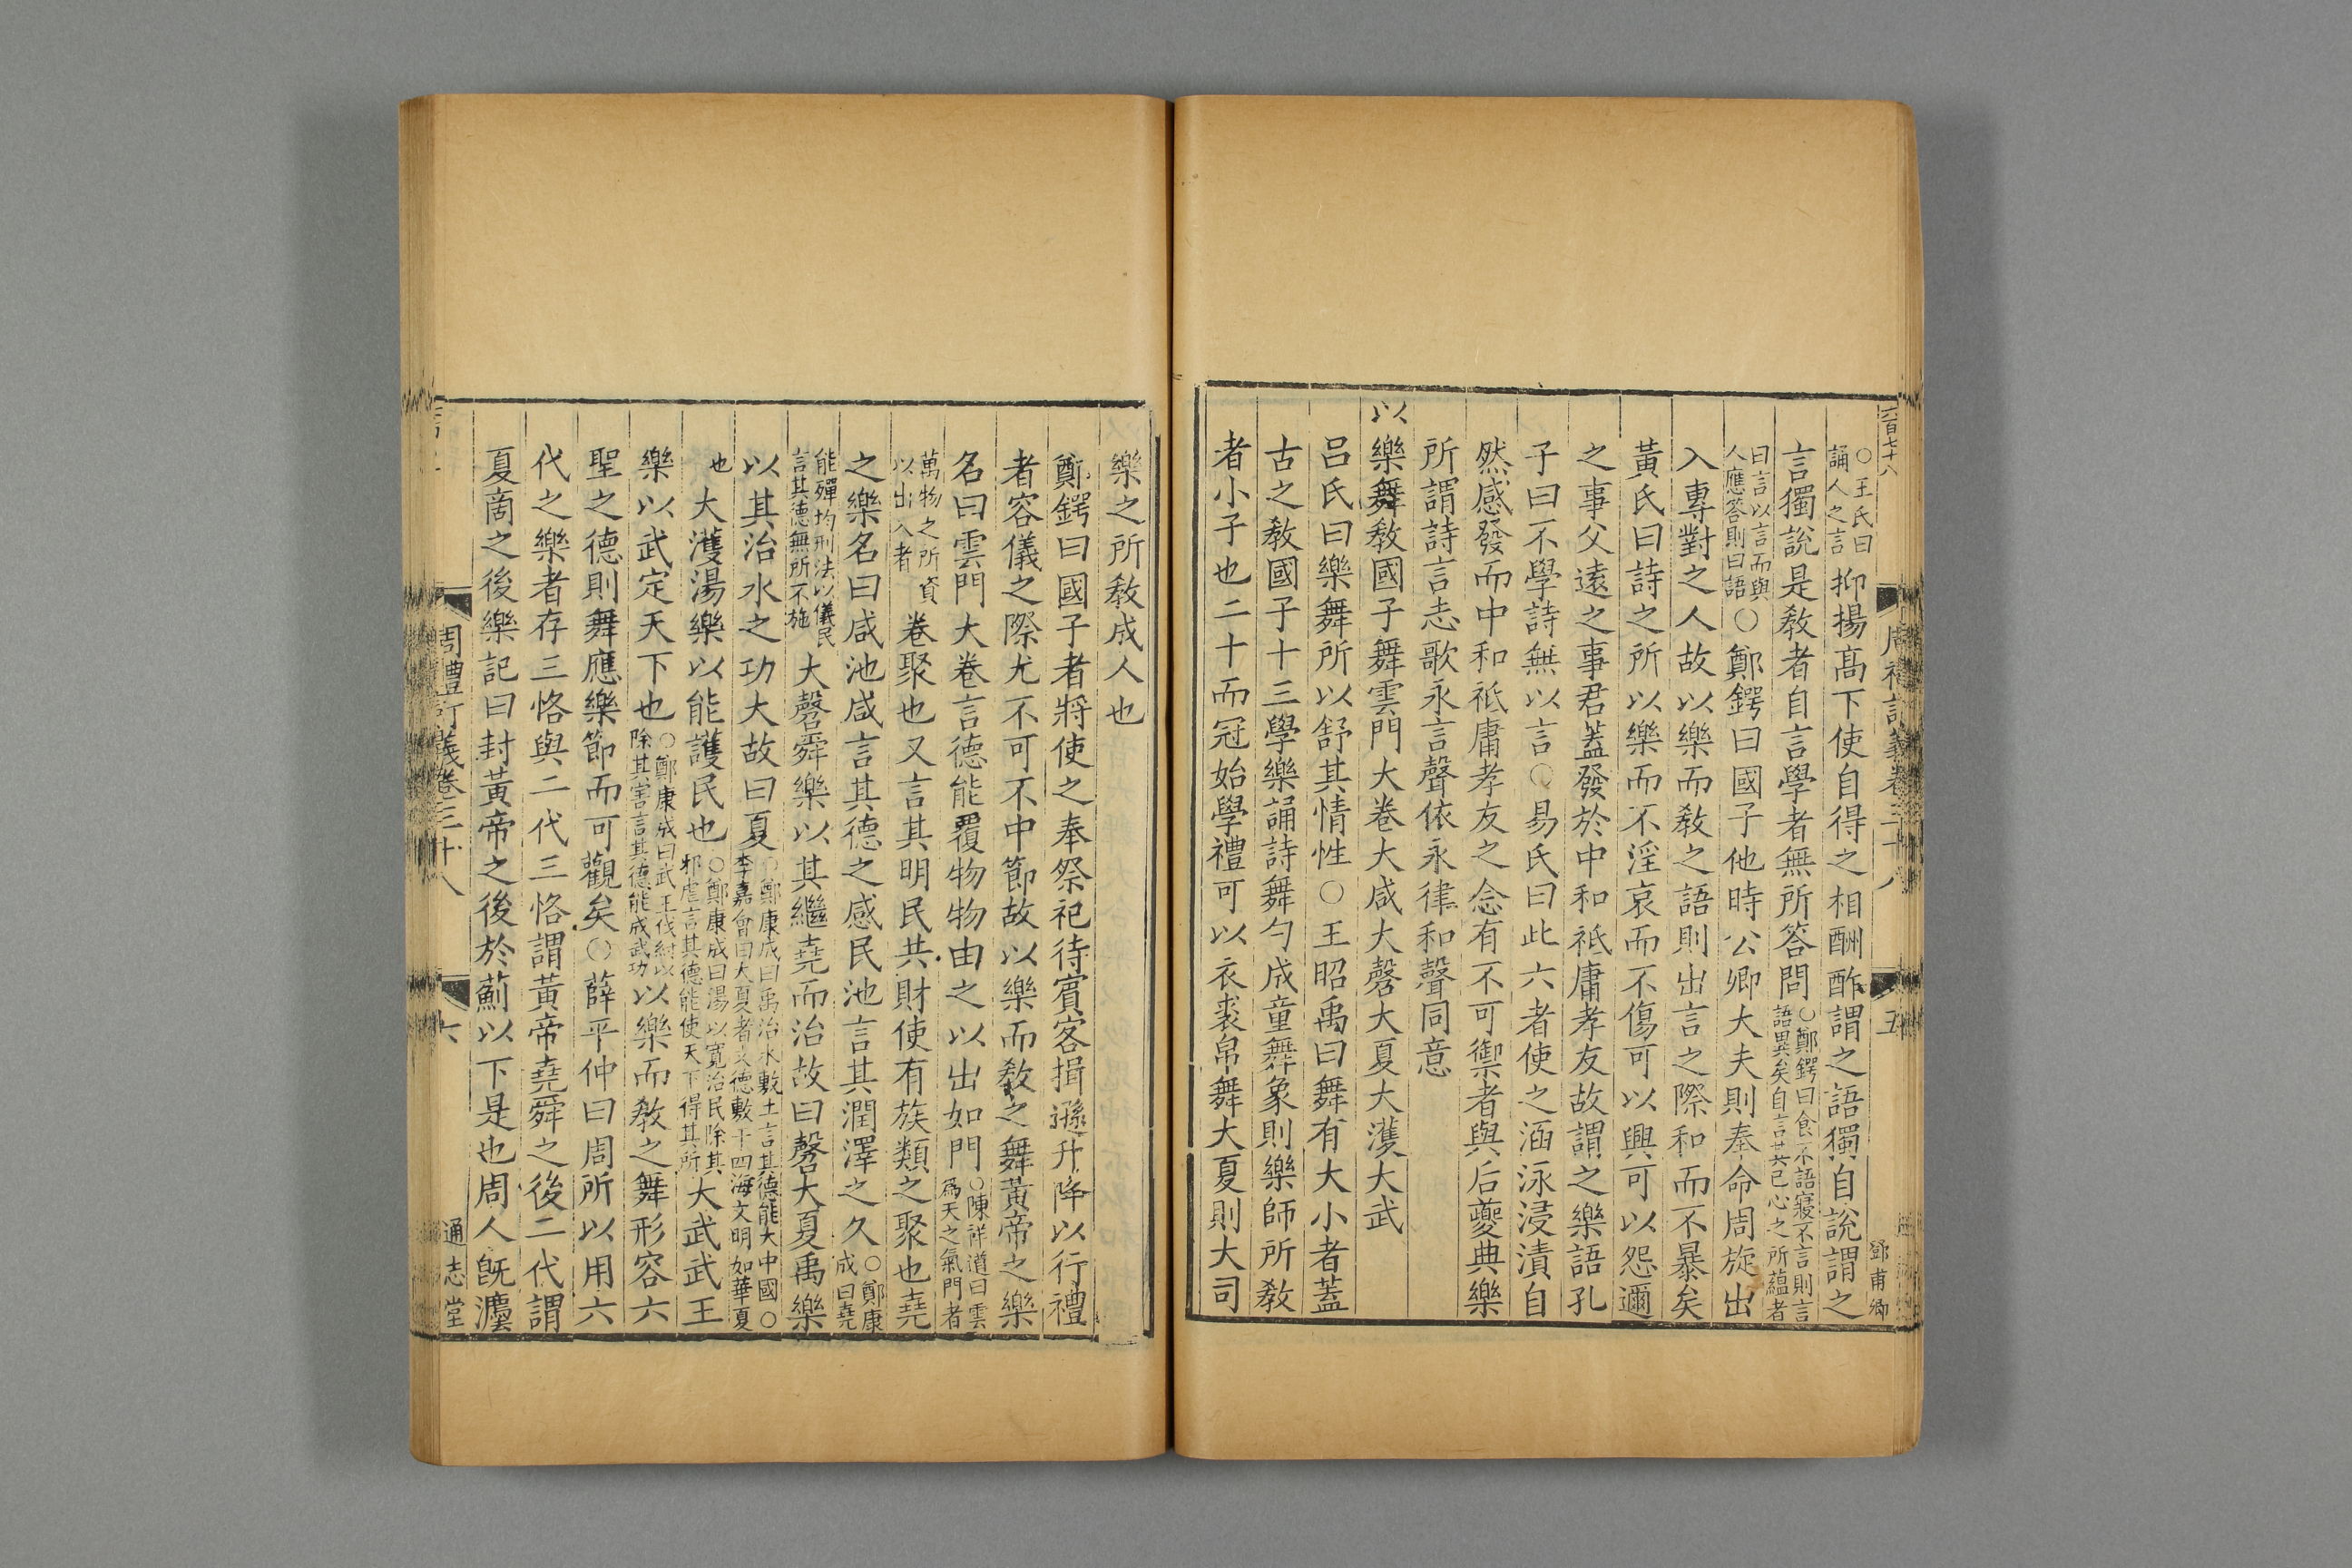 六百七十八
周禮訂義卷三十八
五
鄧甫卿
○王氏曰誦人之言抑揚高下使自得之相酬酢謂之語獨自說謂之
言獨說是教者自言學者無所答問○鄭鍔曰食不語寢不言則言語異矣自言其己心之所蘊者
曰言以言而與人應答則曰語○鄭鍔曰國子他時公卿大夫則奉命周旋出
入專對之人故以樂而教之語則出言之際和而不暴矣
黃氏曰詩之所以樂而不淫哀而不傷可以興可以怨邇
之事父遠之事君蓋發於中和祗庸孝友故謂之樂語孔
子曰不學詩無以言○易氏曰此六者使之涵泳浸漬自
然感發而中和祗庸孝友之念有不可禦者與后夔典樂
所謂詩言志歌永言聲依永律和聲同意
以樂舞教國子舞雲門大卷大咸大磬大夏大濩大武
呂氏曰樂舞所以舒其情性○王昭禹曰舞有大小者蓋
古之教國子十三學樂誦詩舞勺成童舞象則樂師所教
者小子也二十而冠始學禮可以衣裘帛舞大夏則大司
樂之所教成人也
鄭鍔曰國子者將使之奉祭祀待賓客揖遜升降以行禮
者容儀之際尤不可不中節故以樂而教之舞黃帝之樂
名曰雲門大卷言德能覆物物由之以出如門○陳祥道曰雲爲天之氣門者
萬物之所資以出入者卷聚也又言其明民共財使有族類之聚也堯
之樂名曰咸池咸言其德之感民池言其潤澤之久○鄭康成曰堯
能殫均刑法以儀民言其德無所不施大磬舜樂以其繼堯而治故曰磬大夏禹樂
以其治水之功大故曰夏○鄭康成曰禹治水敷土言其德能大中國○李嘉會曰大夏者文德敷于四海文明如華夏
也大濩湯樂以能護民也○鄭康成曰湯以寬治民除其邪虐言其德能使天下得其所大武武王
樂以武定天下也○鄭康成曰武王伐紂以除其害言其德能成武功以樂而教之舞形容六
聖之德則舞應樂節而可觀矣○薛平仲曰周所以用六
代之樂者存三恪與二代三恪謂黃帝堯舜之後二代謂
夏商之後樂記曰封黃帝之後於薊以下是也周人旣濩
周禮訂義卷三十八
六
通志堂